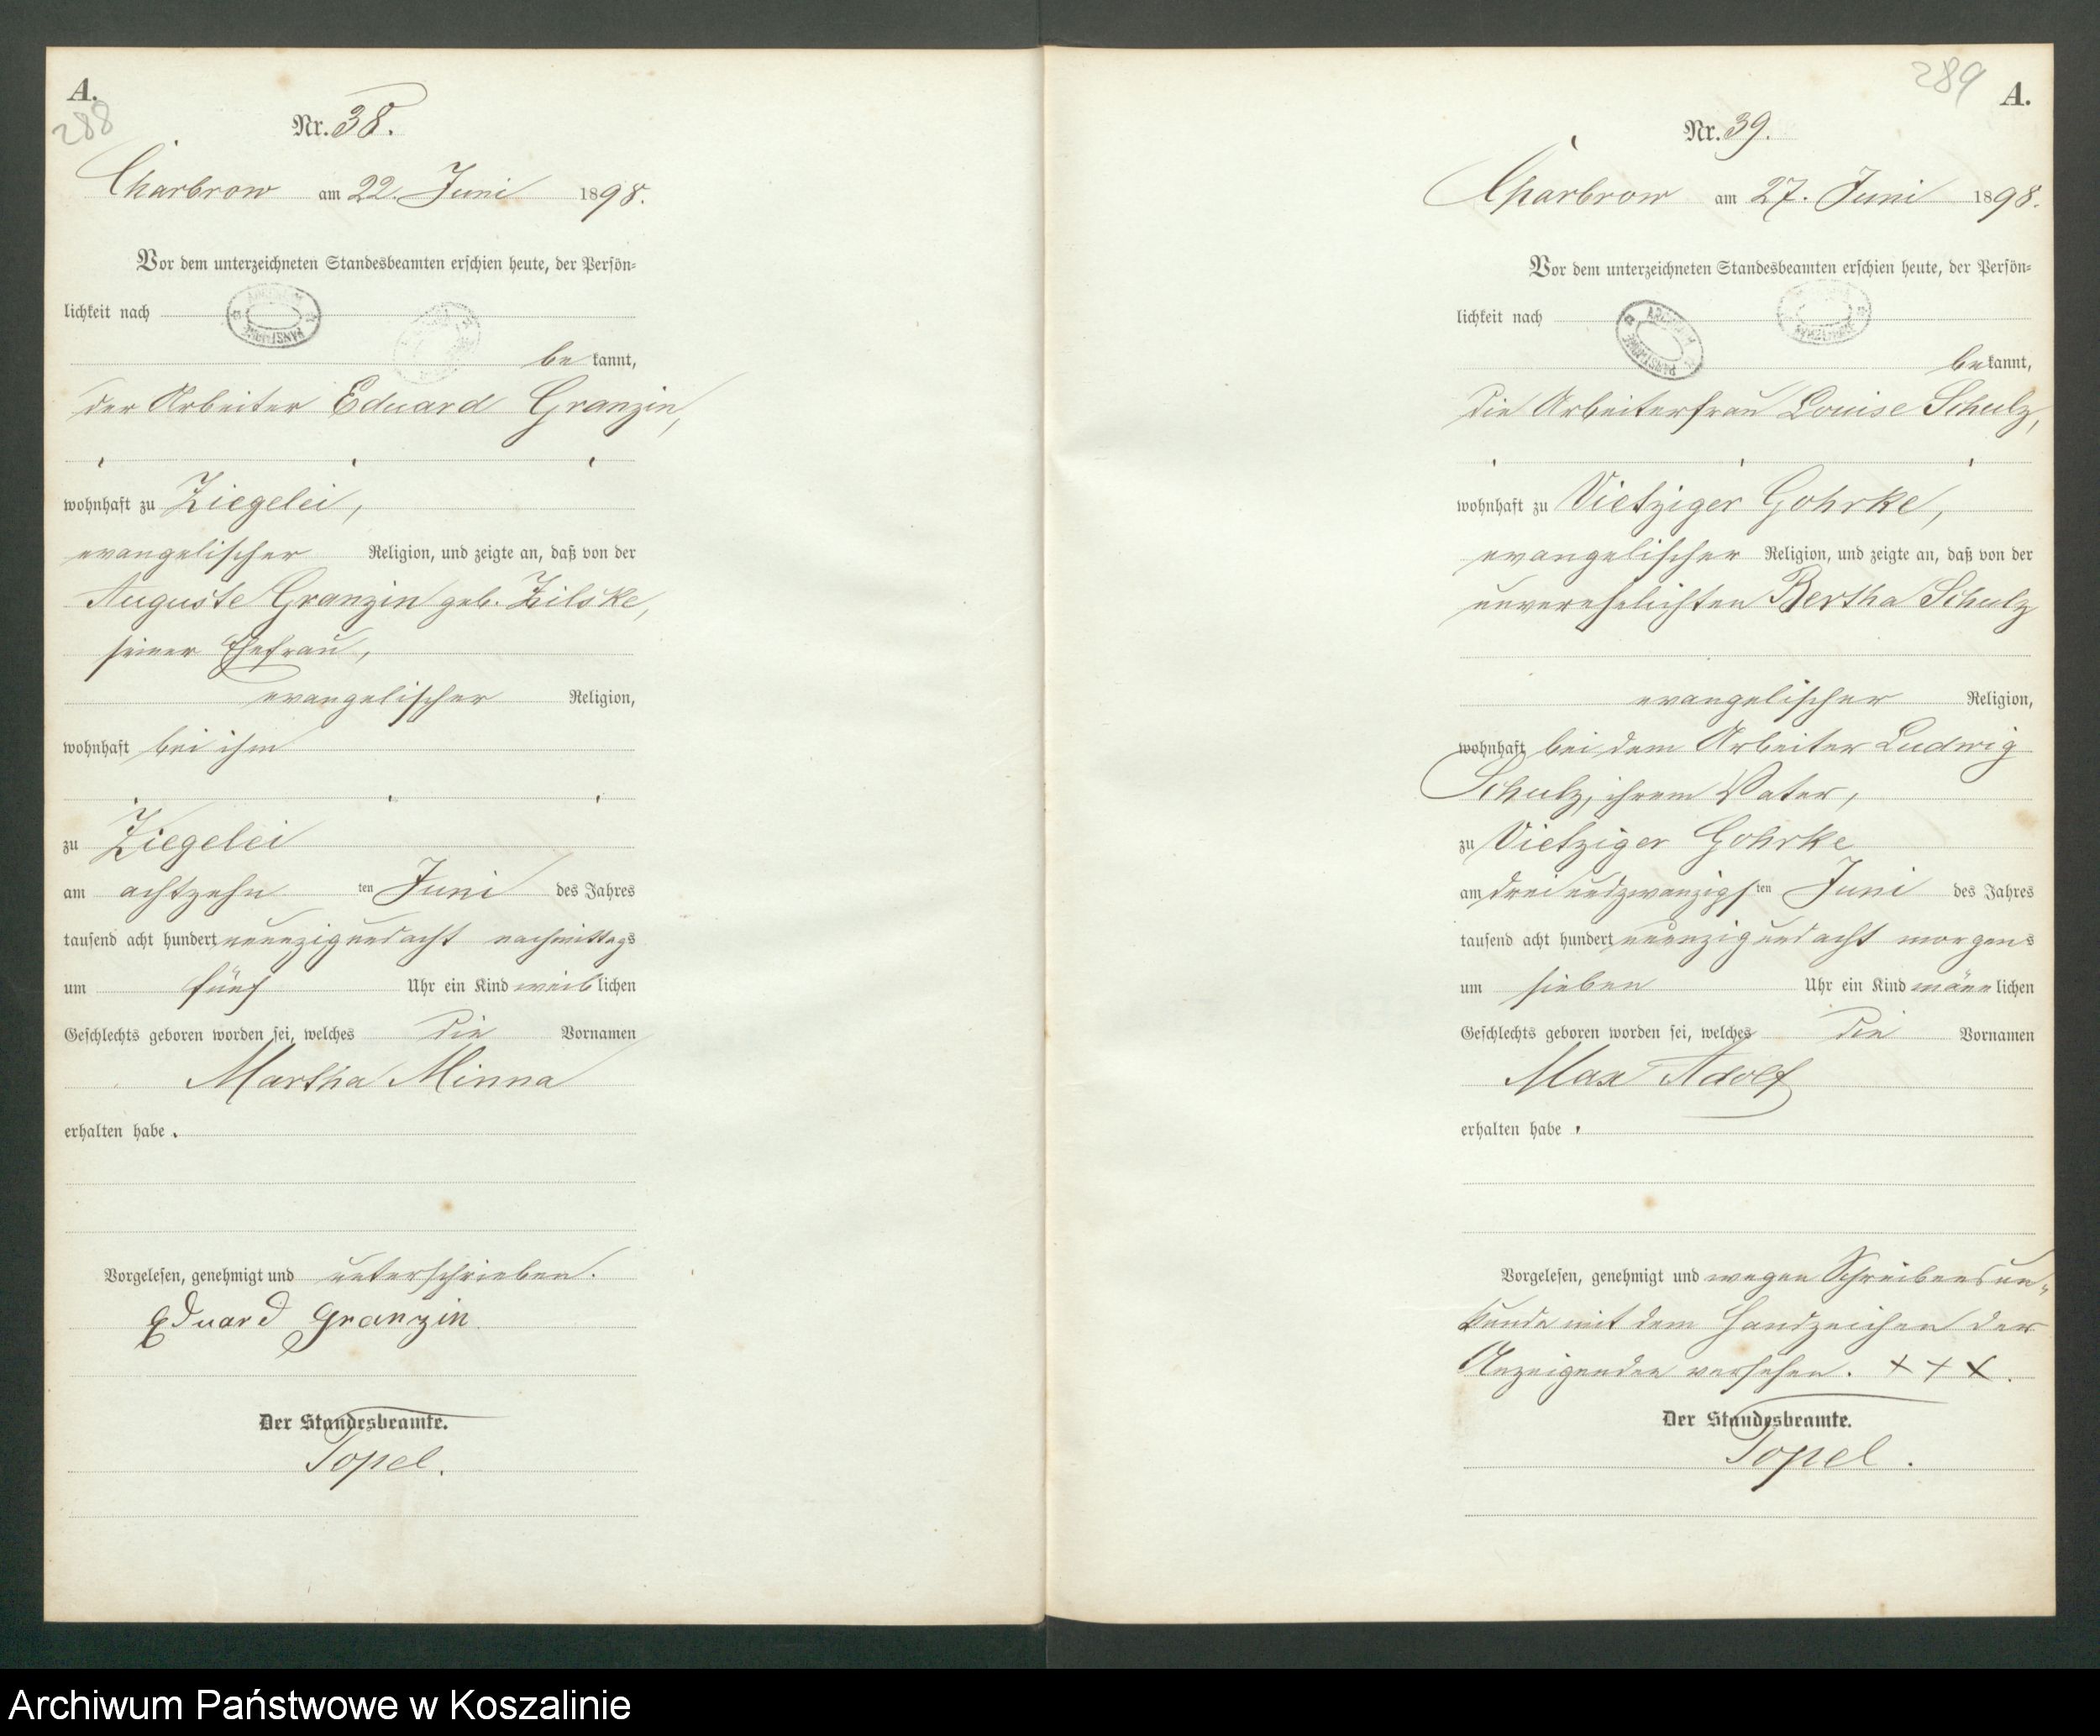 A.
288
Nr. 38.
Charbrow am 22. Juni 1898.
Vor dem unterzeichneten Standesbeamten erschien heute, der Persön=
lichkeit nach
be kannt,
der Arbeiter Eduard Granzin,
wohnhaft zu Ziegelei,
evangelischer Religion, und zeigte an, daß von der
Auguste Granzin geb. Zilske,
seiner Ehefrau,
evangelischer Religion,
wohnhaft bei ihm
zu Ziegelei
am achtzehn ten Juni des Jahres
tausend acht hundert neunzig und acht nachmittags
um fünf Uhr ein Kind weib lichen
Geschlechts geboren worden sei, welches die Vornamen
Martha Minna
erhalten habe.
Vorgelesen, genehmigt und unterschrieben.
Eduard Granzin.
Der Standesbeamte.
Topel.
289
A.
Nr. 39.
Charbrow am 27. Juni 1898.
Vor dem unterzeichneten Standesbeamten erschien heute, der Persön=
lichkeit nach
be kannt,
die Arbeiterfrau Louise Schulz,
wohnhaft zu Vietziger Gohrke,
evangelischer Religion, und zeigte an, daß von der
unverehelichten Bertha Schulz
evangelischer Religion,
wohnhaft bei dem Arbeiter Ludwig
Schulz, ihrem Vater,
zu Vietziger Gohrke
am dreiundzwanzigs ten Juni des Jahres
tausend acht hundert neunzig und acht morgens
um sieben Uhr ein Kind männ lichen
Geschlechts geboren worden sei, welches die Vornamen
Max Adolf
erhalten habe.
Vorgelesen, genehmigt und wegen Schreibensun=
kunde mit dem Handzeichen der
Anzeigenden versehen. + + +.
Der Standesbeamte.
Topel.
Archiwum Państwowe w Koszalinie